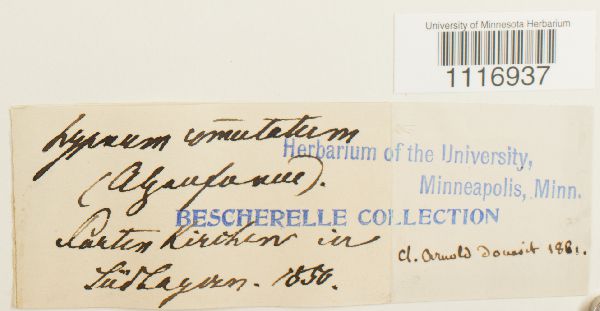 University of Minnesota Herbarium
1116937
Hypnum commutatum
(Alpenform).
Herbarium of the University,
Minneapolis, Minn.
BESCHERELLE COLLECTION
Partenkirchen in
Südbayern. 1850.
cl. Arnold donavit 1881.